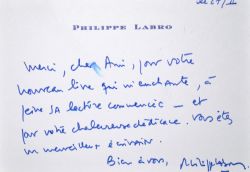 PHILIPPE LABRO
Merci, cher Ami, pour votre
nouveau livre qui m'enchante, à
peine sa lecture commencée – et
pour votre chaleureuse dédicace. Vous êtes
un merveilleux écrivain.
Bien à vous, Philippe Labro